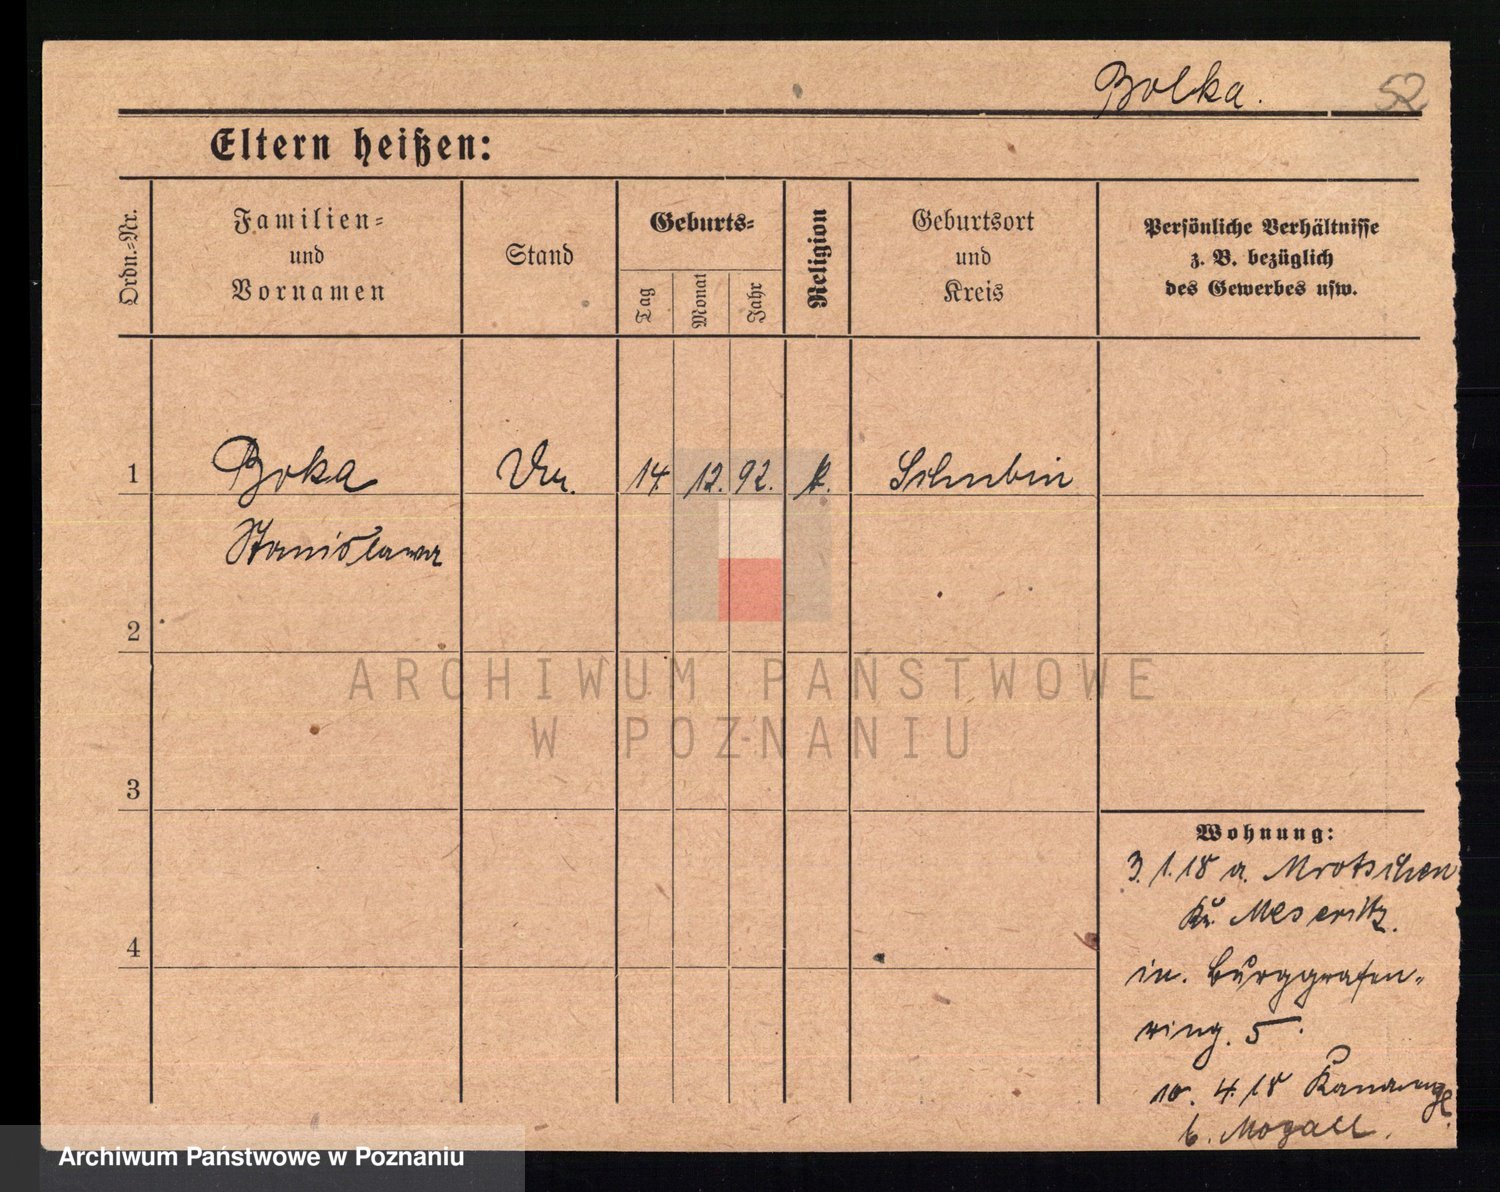 Bolka.
52
Eltern heißen:
Ordn.-Nr.
Familien-
und
Vornamen
Stand
Geburts-
Tag
Monat
Jahr
Religion
Geburtsort
und
Kreis
Persönliche Verhältnisse
z. B. bezüglich
des Gewerbes usw.
1 Boka 14. 12. 92. k. Schubin
Stanislawa
2
3
4
Wohnung:
3. 1. 18 a. Mrotschen
Kr. Meseritz.
in. Burggrafen-
ring. 5.
10. 4. 18
b.
ARCHIWUM PAŃSTWOWE
W POZNANIU
Archiwum Państwowe w Poznaniu